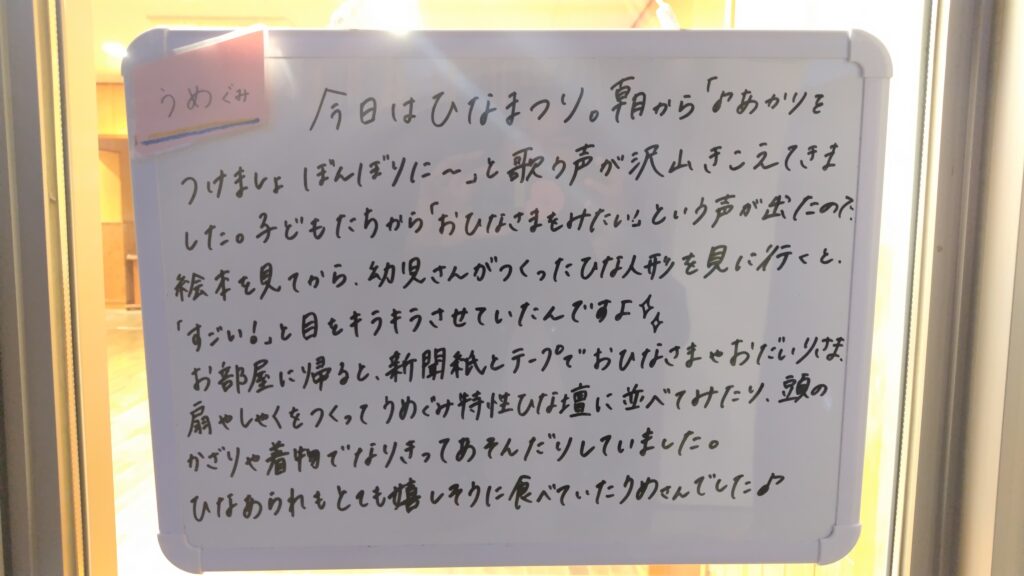 うめぐみ
今日はひなまつり。朝から「♪あかりを
つけましょ ぼんぼりに〜」と歌う声が沢山きこえてきま
した。子どもたちから「おひなさまをみたい」という声が出たので、
絵本を見てから、幼児さんがつくったひな人形を見に行くと、
「すごい!」と目をキラキラさせていたんですよ✧✧
お部屋に帰ると、新聞紙とテープでおひなさまやおだいりさま、
扇やしゃくをつくってうめぐみ特性ひな壇に並べてみたり、頭の
かざりや着物でなりきってあそんだりしていました。
ひなあられもとても嬉しそうに食べていたうめさんでした♪